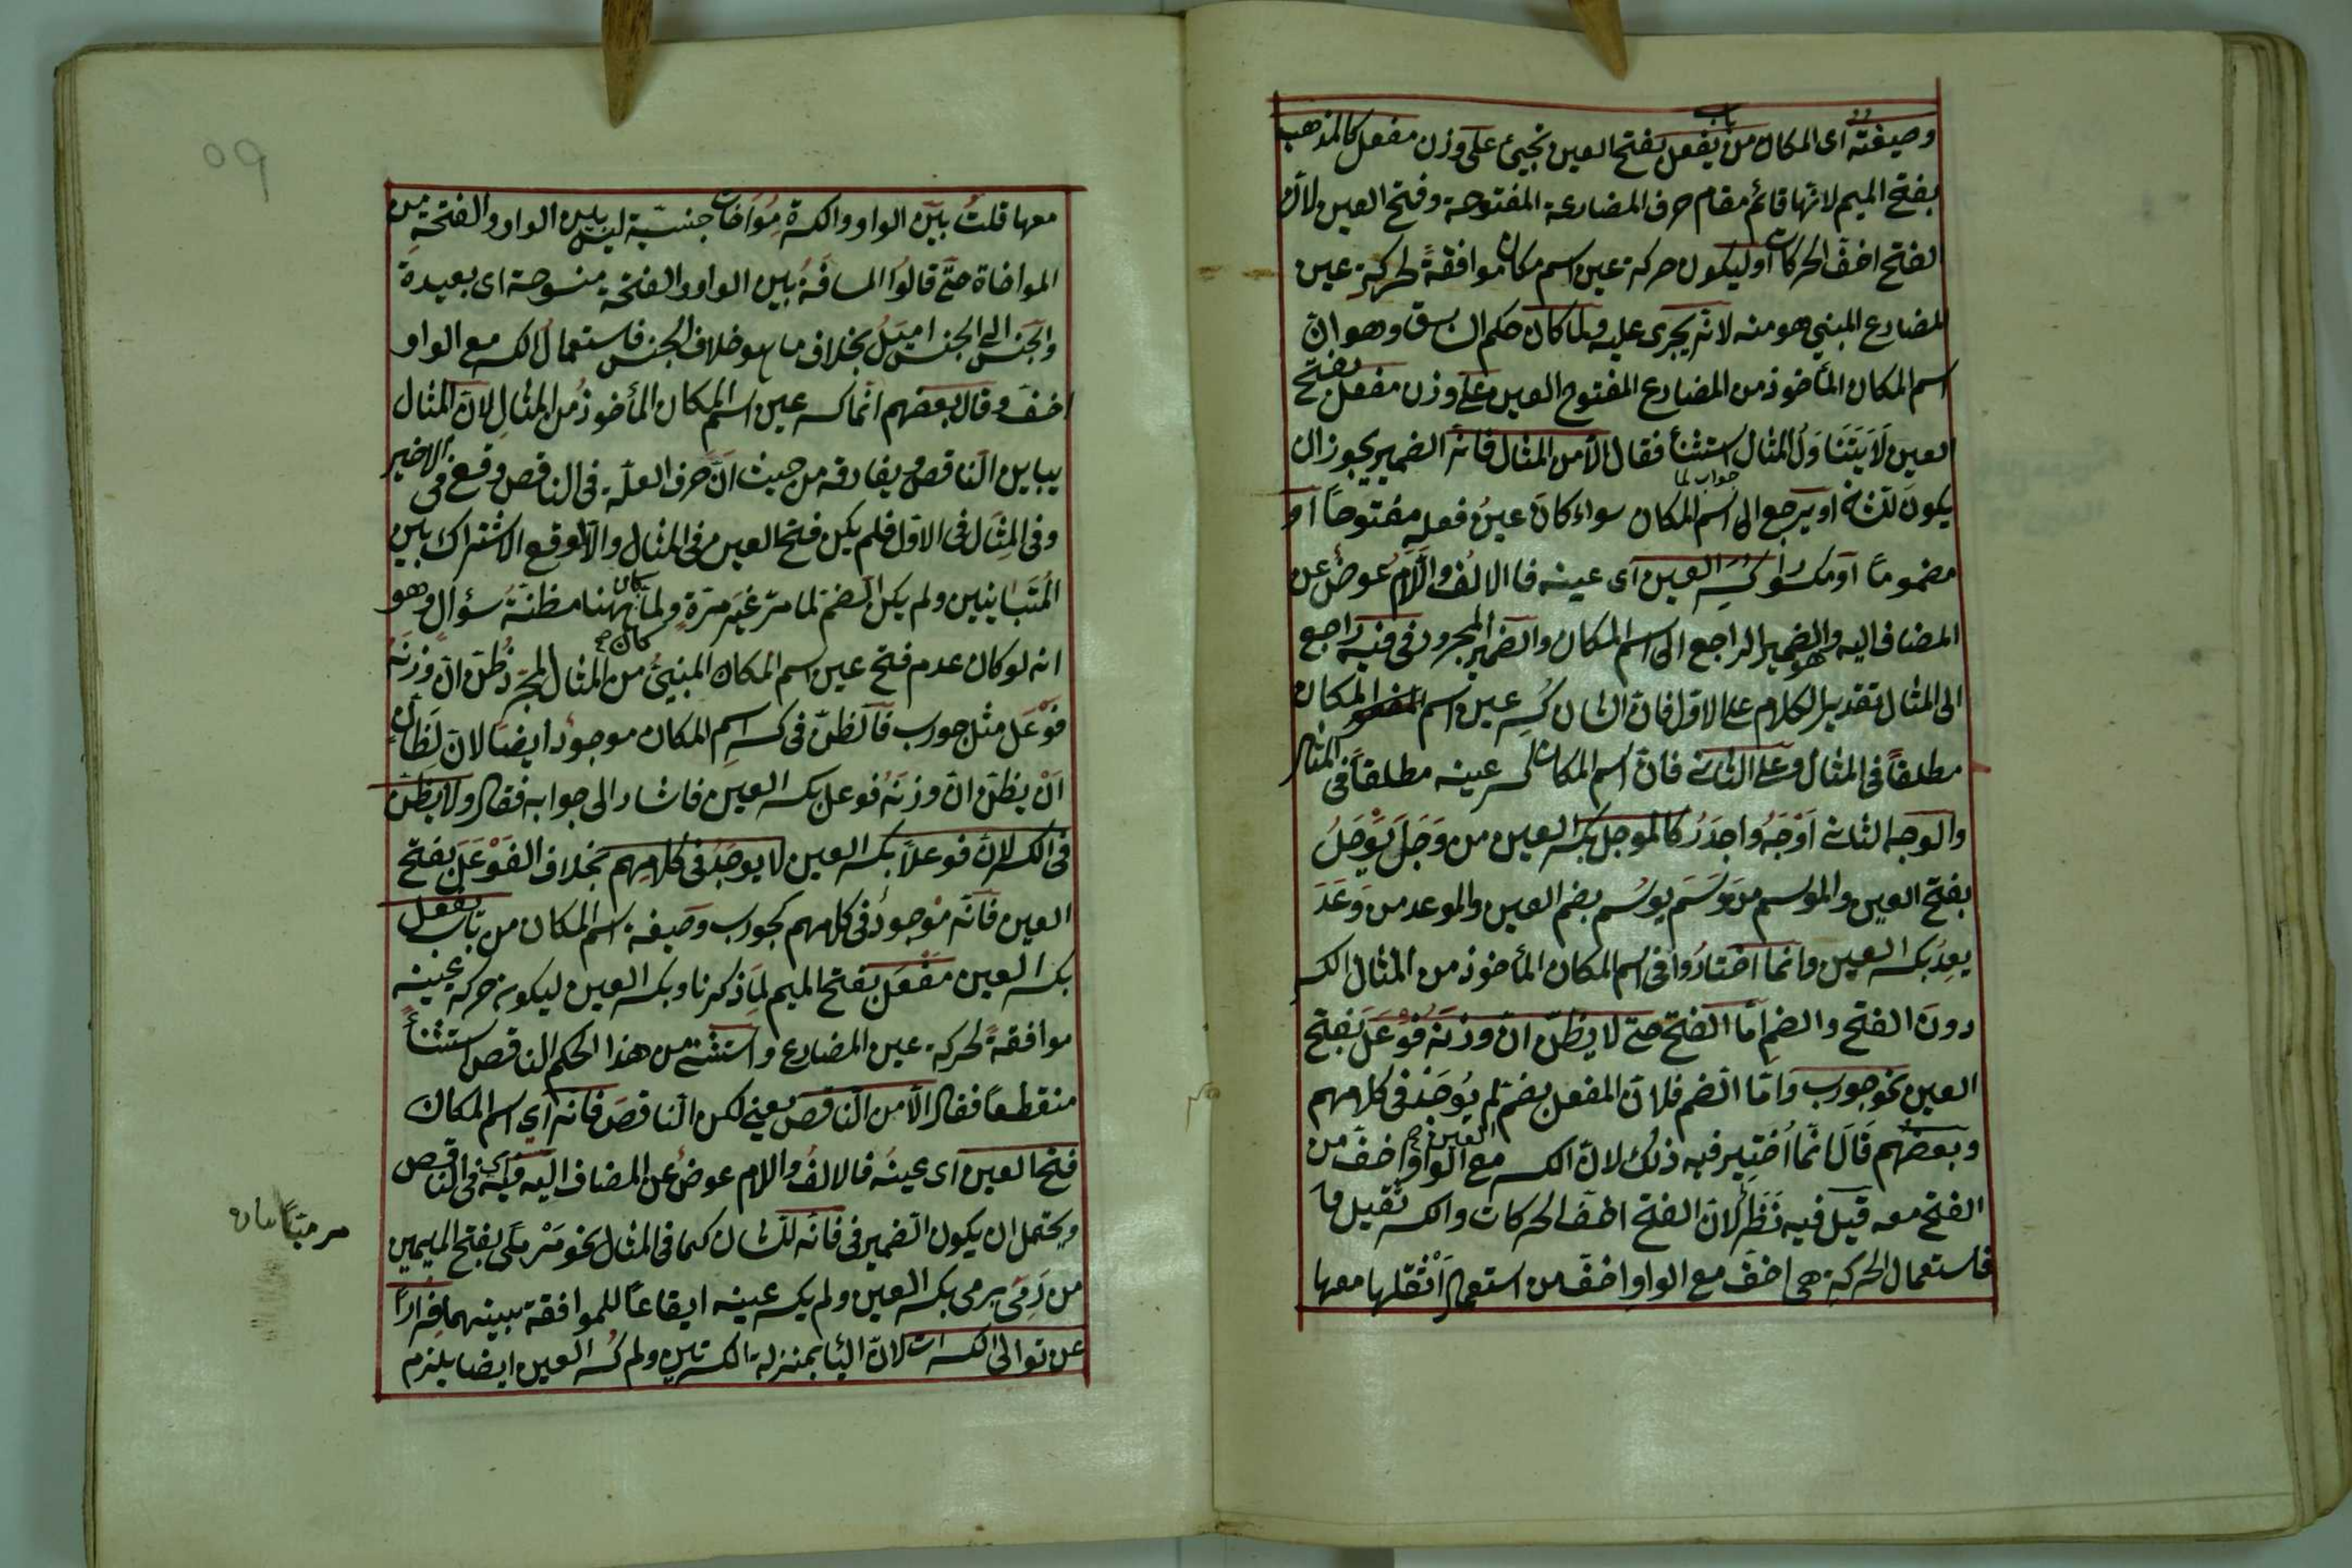 وصيغته اى المكان من باب يفعل بفتح العين تجيئ على وزن مفعل كالمذهب
بفتح الميم لانّها قائم مقام حرف المضارعة المفتوحة وفتح العين لانّ
لفتح اخفّ الحركات او ليكون حركة عين اسم مكان موافقةً لحركةِ عين
المضارع المبني هو منه لانّه يجرى عليه ولما كان حكم السابق وهو انّ
اسم المكان المأخوذ من المضارع المفتوح العين على وزن مفعل بفتح
العين لَا يَتَنَاوَلُ المثال استثنأ فقال الّا من المثال فانّه الضمير يجوز ان
جواب لما
يكونَ للشّانِ او يرجع الى اسم المكان سواء كانَ عينُ فعله مفتوحًا او
مضمومًا او مكسورا كُسِرَ العين اى عينه فالالفُ واللّام عوضٌ عن
المضاف اليه والضمير الراجع الى اسم المكان والضمير المجرور فى فيه راجع
الى المثال وتقدير الكلام على الاوّل فان الشان كُسِر عين اسم المكان
مطلقًا فى المثال وعلى الثانى فانّ اسم المكان كسر عينه مطلقاً فى المثال
والوجه الثانى اَوْجَهُ واجدَرُ كالموجل بكسر العين من وَجَلَ يَوْجَلُ
بفتح العين والموسم من وَسَمَ يوسُم بضم العين والموعد من وَعَدَ
يعِدُ بكسر العين وانما اختارُوا فى اسم المكان المأخوذ من المثال الكسر
دونَ الفتح والضم امّا الفتح حتى لا يظنّ انّ وزنَهُ فَوْعَل بفتح
العين نحو جورب وامّا الضم فلانّ المفعل بضم لم يُوجَدْ فى كلامهم
العين صح
وبعضُهم قَالَ انّما اُختير فيه ذلك لانّ الكسر مع الواو اخفّ من
الفتح معه قيل فيه نَظَرٌ لانّ الفتح اخفّ الحركات والكسر ثقيل فا
فاستعمال الحركةِ هى اخفّ مع الواوِ اخفّ من استعمال اَثْقَلها معها
٥٩
معها قلتُ بين الواو والكسرة مُوَاخات جنسيّة ليس بين الواو والفتحةِ من
المواخاة حتّى قالوُا المسافَةُ بين الواو والفتحة منسوحة اى بعيدة
والجنسُ الى الجنس اميَلُ بخلاف ما هو خلاف الجنس فاستعمالُ الكسر مع الواو
اخفّ وقال بعضهم انّما كسر عين اسم المكان المأخوذُ من المثالِ لانّ المثال
يباين النّاقص ويفارقه من حيث انّ حرف العلّة فى الناقص وقع فى الاخير
وفى المِثَال فى الاوّل فلم يكن فتح العين فى المثال والّا لوقع الاشتراك بين
المُتَبَاينين ولم يكن الضم لما مرّ غيَر مرّةٍ ولمّا كان ههنا مظنّةُ سؤالٍ وهو
كان صح
انه لو كان عدم فتح عين اسم المكان المبنيُّ من المثال المجرّد ظُنّ انّ وزنَهُ
فَوْعَل مثل جورب فالظنّ فى كسر اسم المكان موجودٌ ايضا لانّ لِظَانٍّ
اَنْ يظنّ انّ وزنَهُ فوعل بكسر العين فاشار الى جوابه فقال ولا يظنّ
فى الكسر لانّ فوعلًا بكسر العين لا يوجَدُ فى كلامهم بخلاف الفَوْعَل بفتح
العين فانّه موجودٌ فى كلامهم كجورب وصيغة اسم المكان من باب يفعل
بكسر العين مَفْعَل بفتح الميم لِمَا ذكرنا وبكسر العين ليكون حركة عينه
موافقةً لحركة عين المضارع واستثنى من هذا الحكم الناقص استثنأً
منقطعاً فقال الّا من النّاقص يعني لكن النّاقصَ فانه اي اسم المكان
فتح العين اى عينُه فالالفُ واللام عوضٌ عن المضاف اليه فيه اى فى الناقص
ويحتمل ان يكون الضمير فى فانه للشان كما فى المثال نحو مَرْمًى بفتح الميمين
من رَمَى يرمى بكسر العين ولم يكسر عينه ايقاعًا للموافقة بينهما فِرارًا
عن توالى الكسرات لانّ اليأ بمنزلة الكسرتين ولم كُسر العين ايضا يلزم